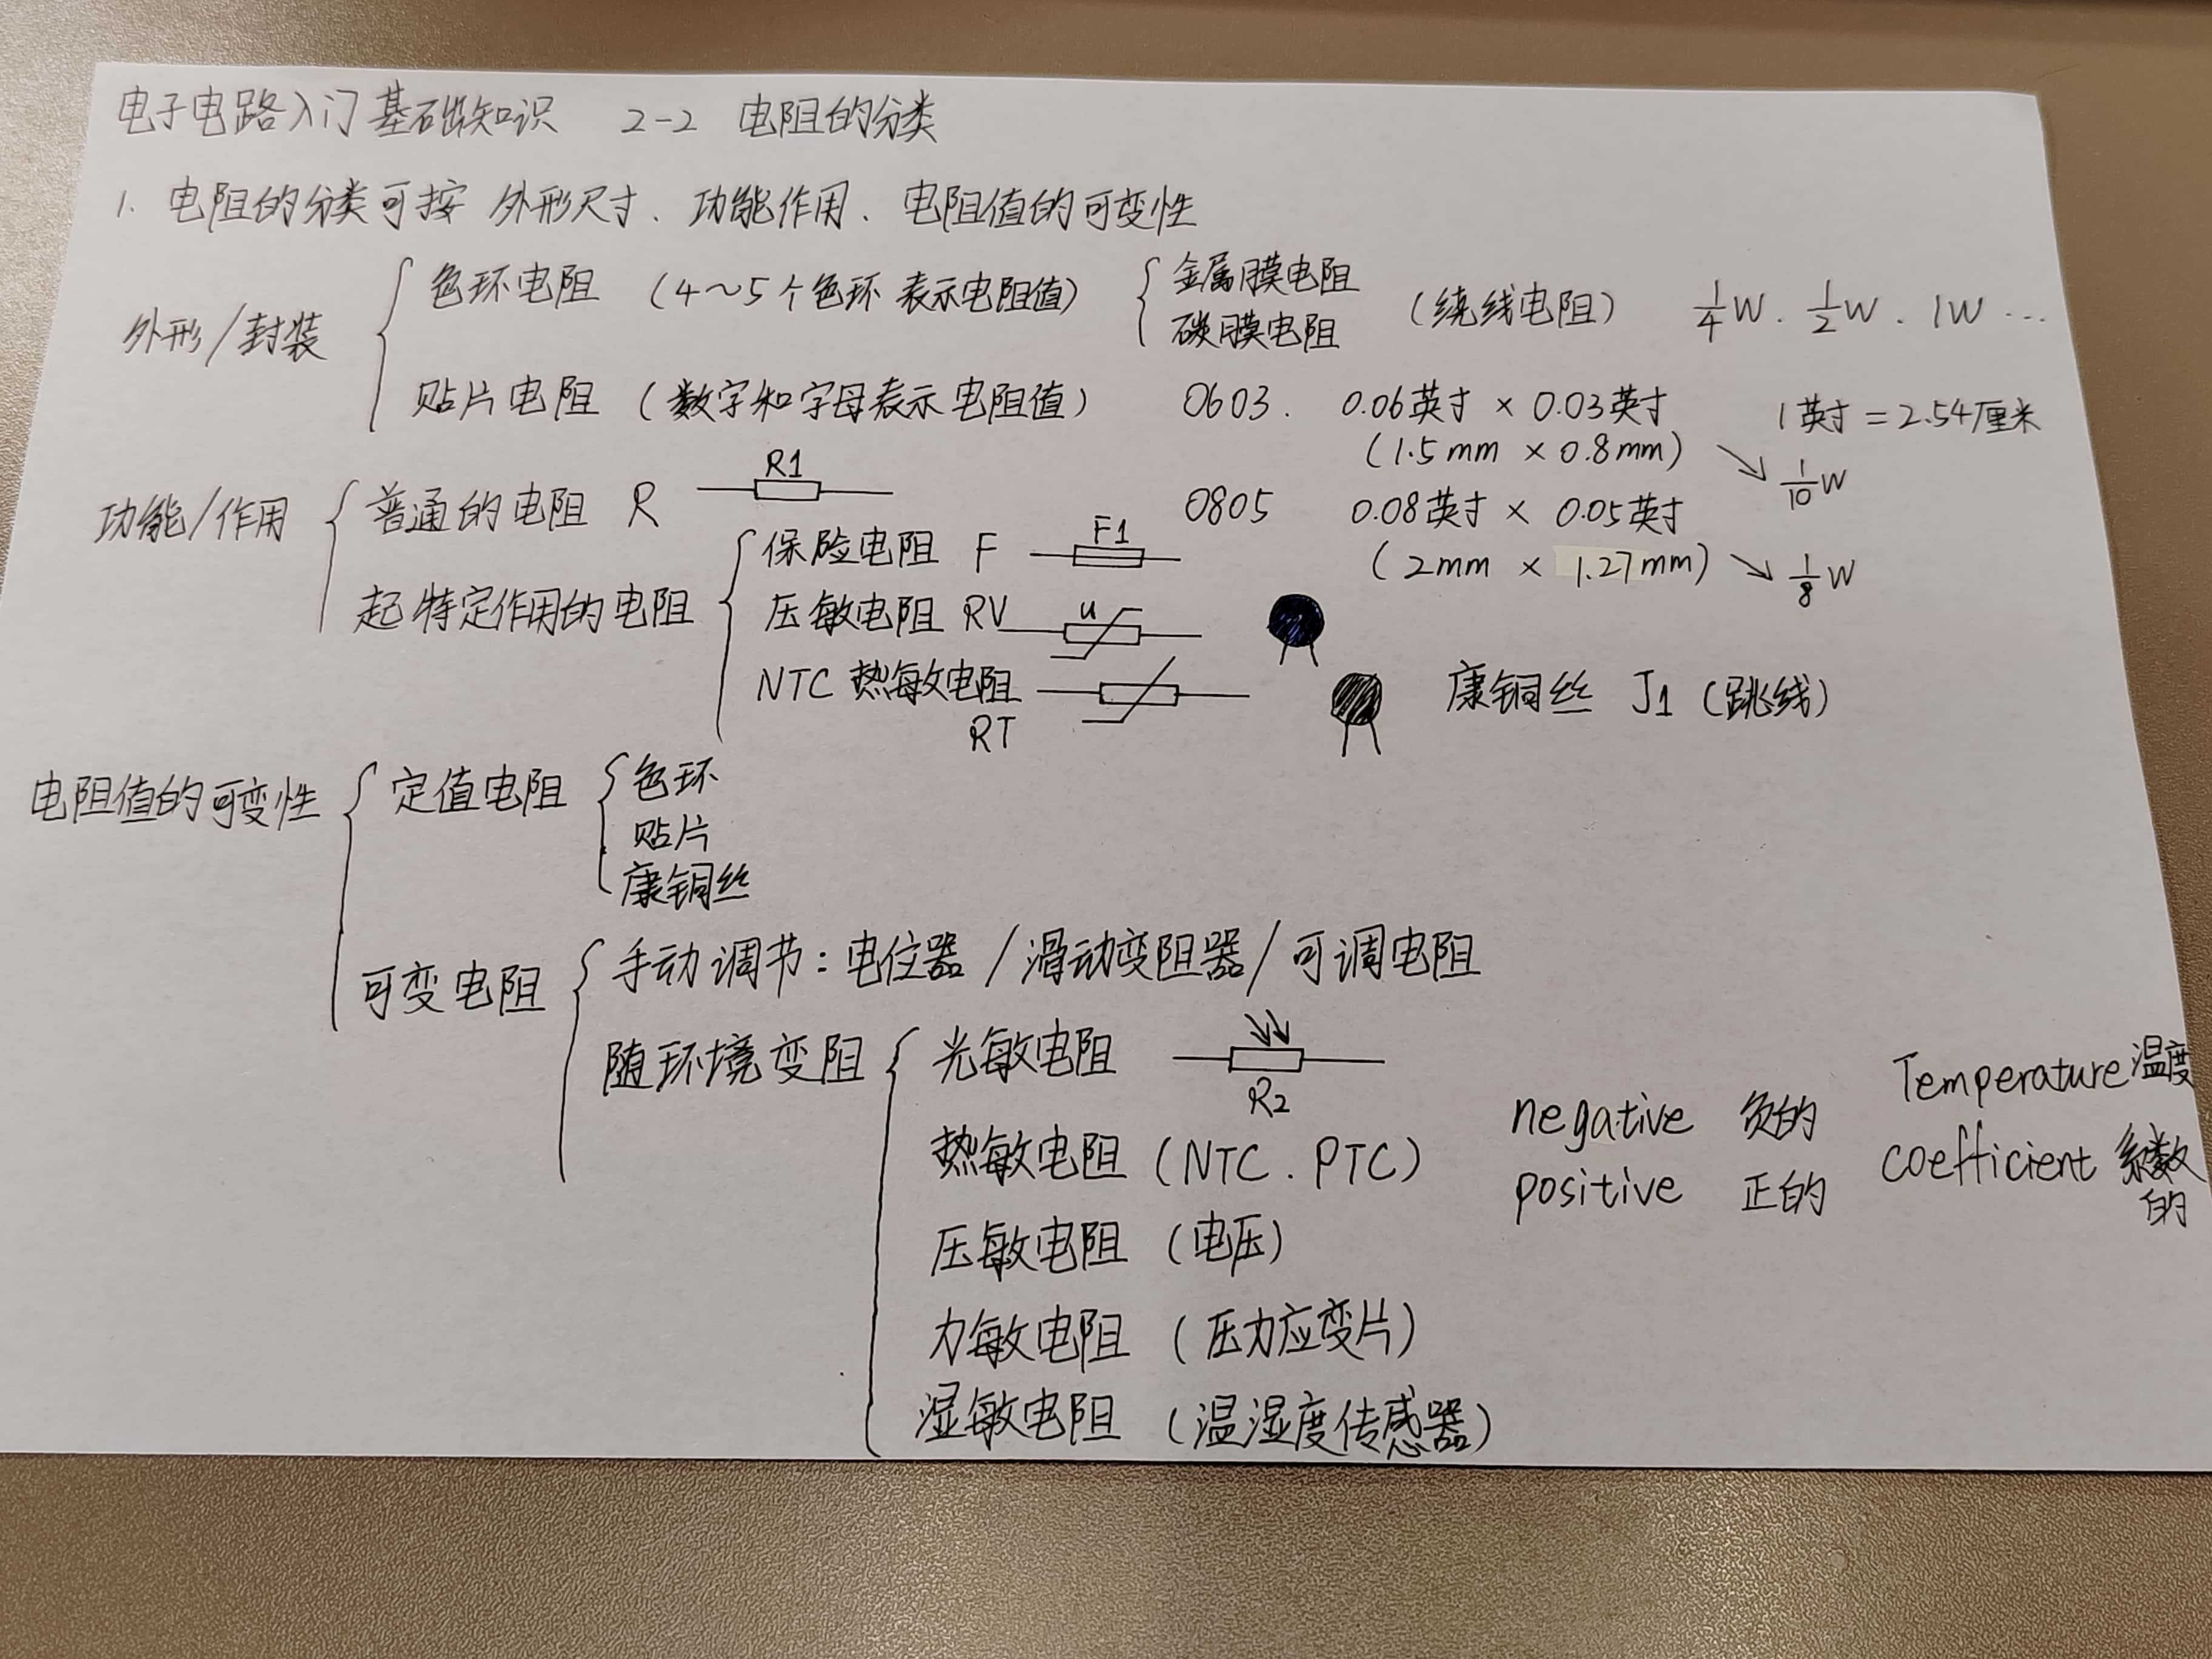 电子电路入门基础知识 2-2 电阻的分类
1. 电阻的分类可按 外形尺寸、功能作用、电阻值的可变性
外形/封装
色环电阻 (4~5个色环 表示电阻值) 金属膜电阻
碳膜电阻
(绕线电阻) 1/4W. 1/2W. 1W...
贴片电阻 (数字和字母表示电阻值) 0603. 0.06英寸 × 0.03英寸 1英寸=2.54厘米
(1.5mm × 0.8mm) 1/10W
0805 0.08英寸 × 0.05英寸
(2mm × 1.27mm) 1/8W
功能/作用
普通的电阻 R R1
起特定作用的电阻
保险电阻 F F1
压敏电阻 RV u
NTC 热敏电阻
RT
康铜丝 J1 (跳线)
电阻值的可变性
定值电阻
色环
贴片
康铜丝
可变电阻
手动调节:电位器/滑动变阻器/可调电阻
随环境变阻
光敏电阻 R2
热敏电阻 (NTC. PTC)
negative 负的
positive 正的
Temperature 温度
coefficient 系数
的
压敏电阻 (电压)
力敏电阻 (压力应变片)
湿敏电阻 (温湿度传感器)